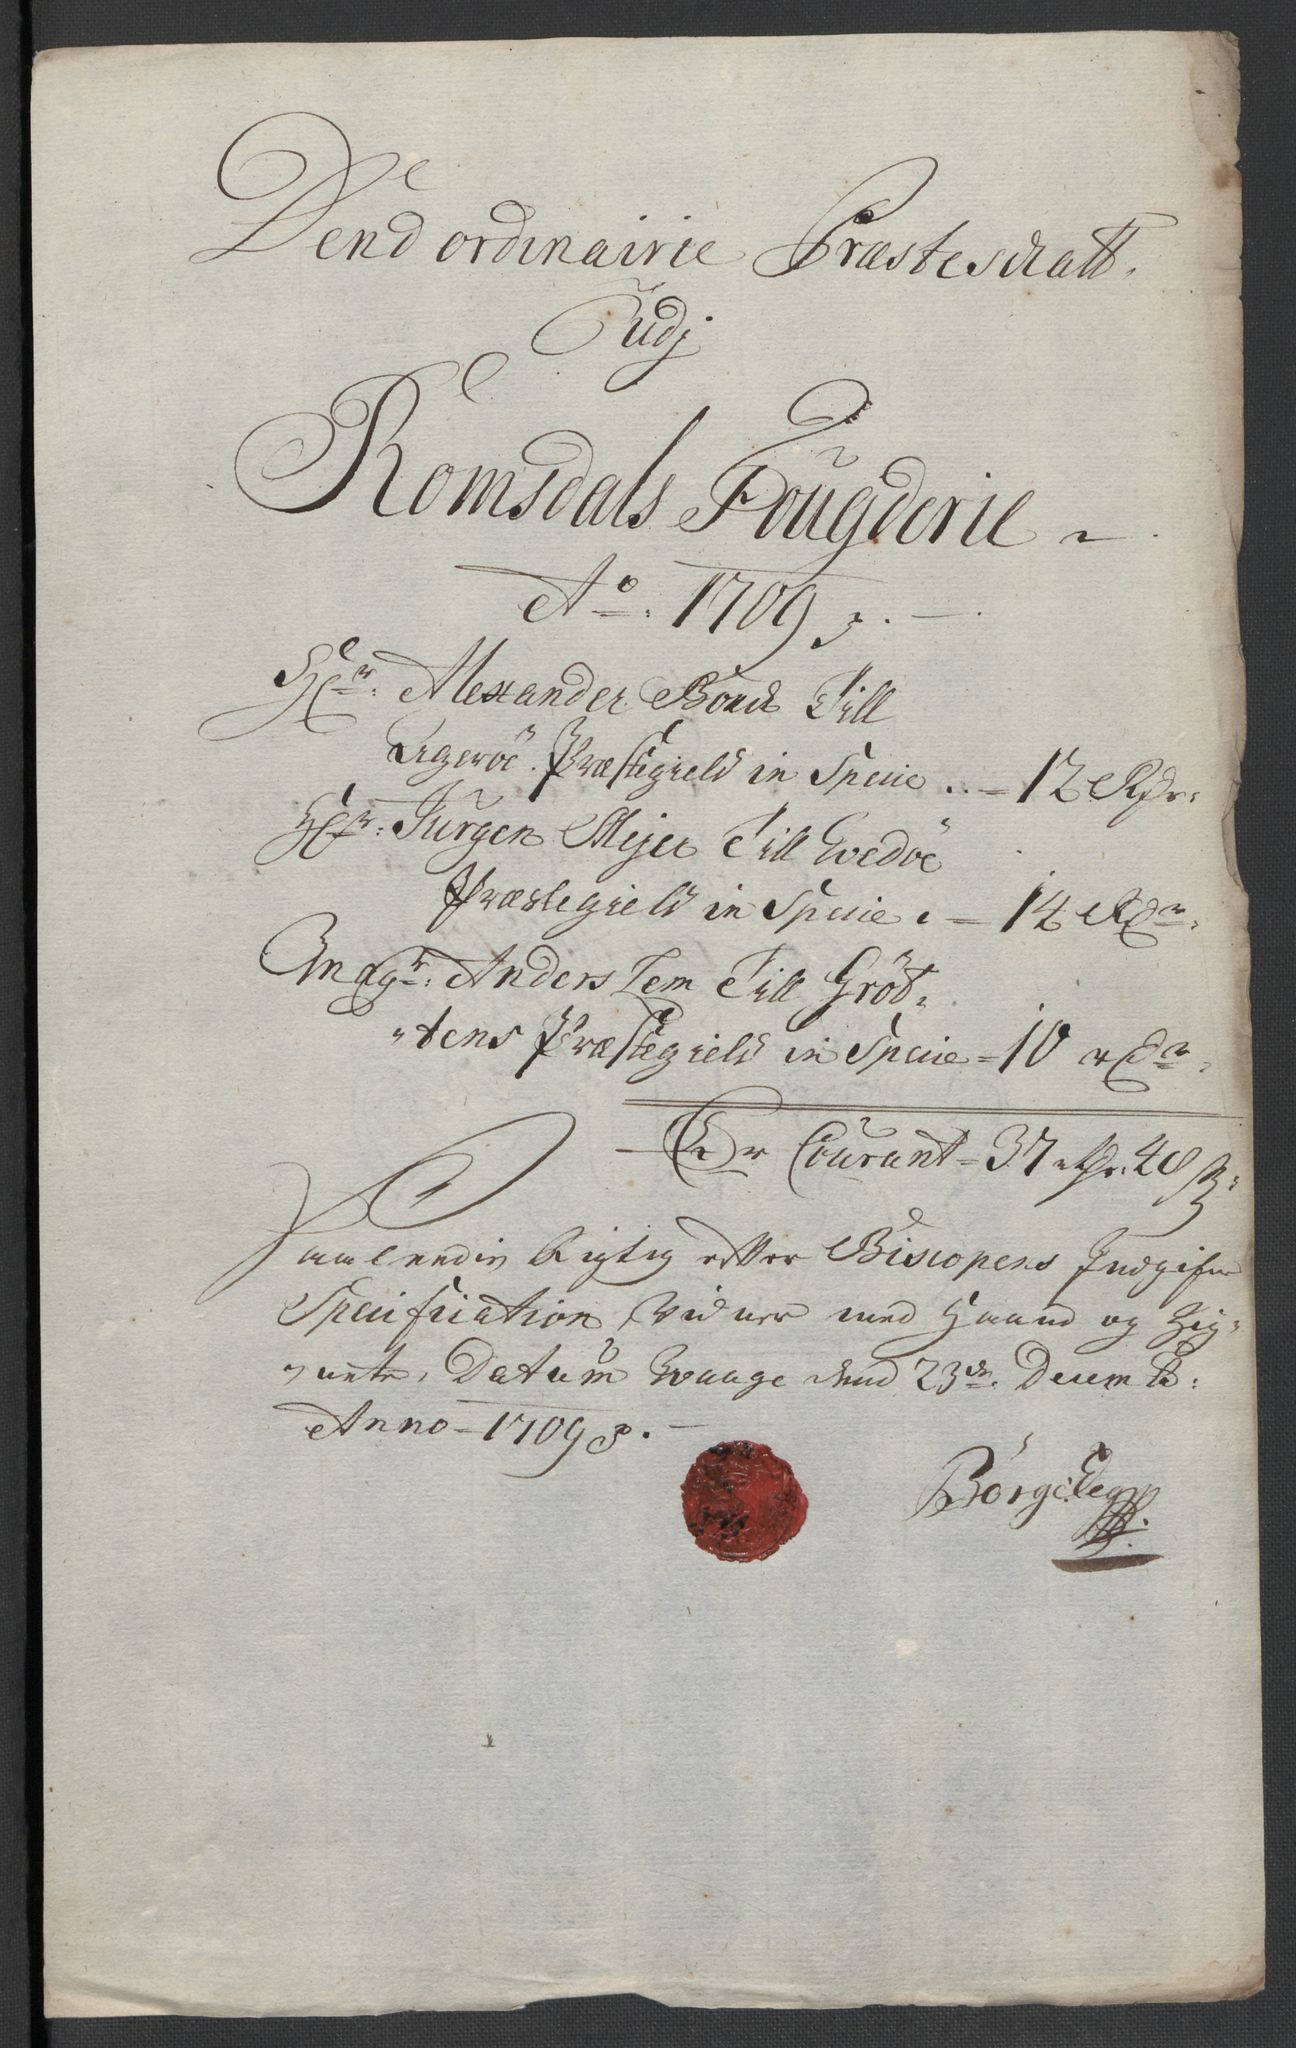 Dend ordinairie Præsteschatt,
Udj
Romsdals Fougderie
Ao. 1709
Hr. Alexander Bonch Till
Agerøe Præstegield in Specie .. = 12 Rdr.
Hr. Jürgen Mejer Till Wedøe
Præstegield in Specie . = 14 Rdr.
Magr. Anders Lem Till Gröt,
,tens Præstegield in Specie = 10 rdr.
Er Courant = 37 rdr. 48 ß:
Saaleedis Rigtig efter Biscopens Indgifne
Specification, Vidner med Haand og Zig,
,nete, Datum Waage dend 23de. Decemb:
Anno = 1709.
Börge